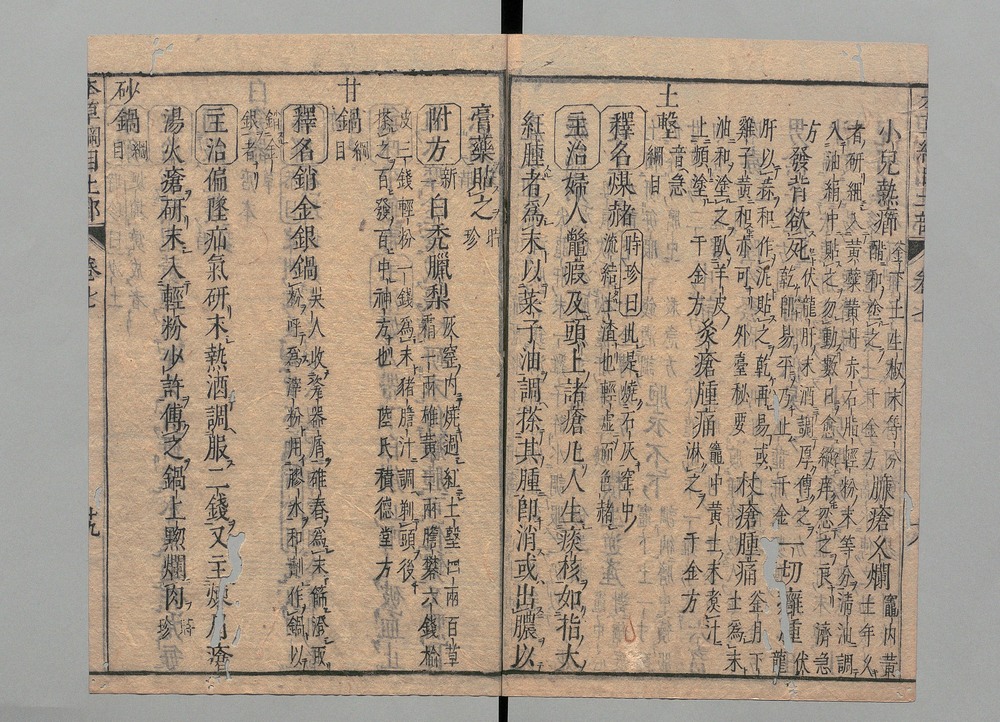 小兒熱癤 釜下土生椒末等分醋和塗之千金方 臁瘡久爛 竈內黃土年久
者研細入黃蘗黃丹赤石脂輕粉末等分清油調
入油絹中貼之勿動數日愈縱痒忍之良 濟急
方 發背欲死 伏龍肝末酒調厚傅之乾即易平乃止 千金 一切癰腫 伏龍
肝以蒜和作泥貼之乾再易或
雞子黃和亦可 外臺秘要 杖瘡腫痛 釜月下土爲末
油和塗之臥羊皮
上頻塗 千金方 灸瘡腫痛 竈中黃土末煑汁淋之 千金方
土墼 音急 綱目
釋名煤赭 時珍曰此是燒石灰窑中流結土渣也輕虛而色赭
主治婦人鱉瘕及頭上諸瘡凡人生痰核如指大
紅腫者爲末以菜子油調搽其腫即消或出膿以
膏藥貼之 時珍
附方 新一 白禿臘梨 灰窑內燒過紅土墼四兩百草
霜一兩雄黃一兩膽礬六錢榆
皮三錢輕粉一錢爲末猪膽汁調剃頭後
搽之百發百中神方也 陸氏積德堂方
甘鍋 綱目
釋名銷金銀鍋 吳人收瓷器屑碓舂爲末篩澄取
粉呼爲滓粉用膠水和劑作鍋以
銷金銀者
主治偏墜疝氣研末熱酒調服二錢又主煉眉瘡
湯火瘡研末入輕粉少許傅之鍋上黝爛肉 時珍
砂鍋 綱目
本草綱目土部 卷七 十九